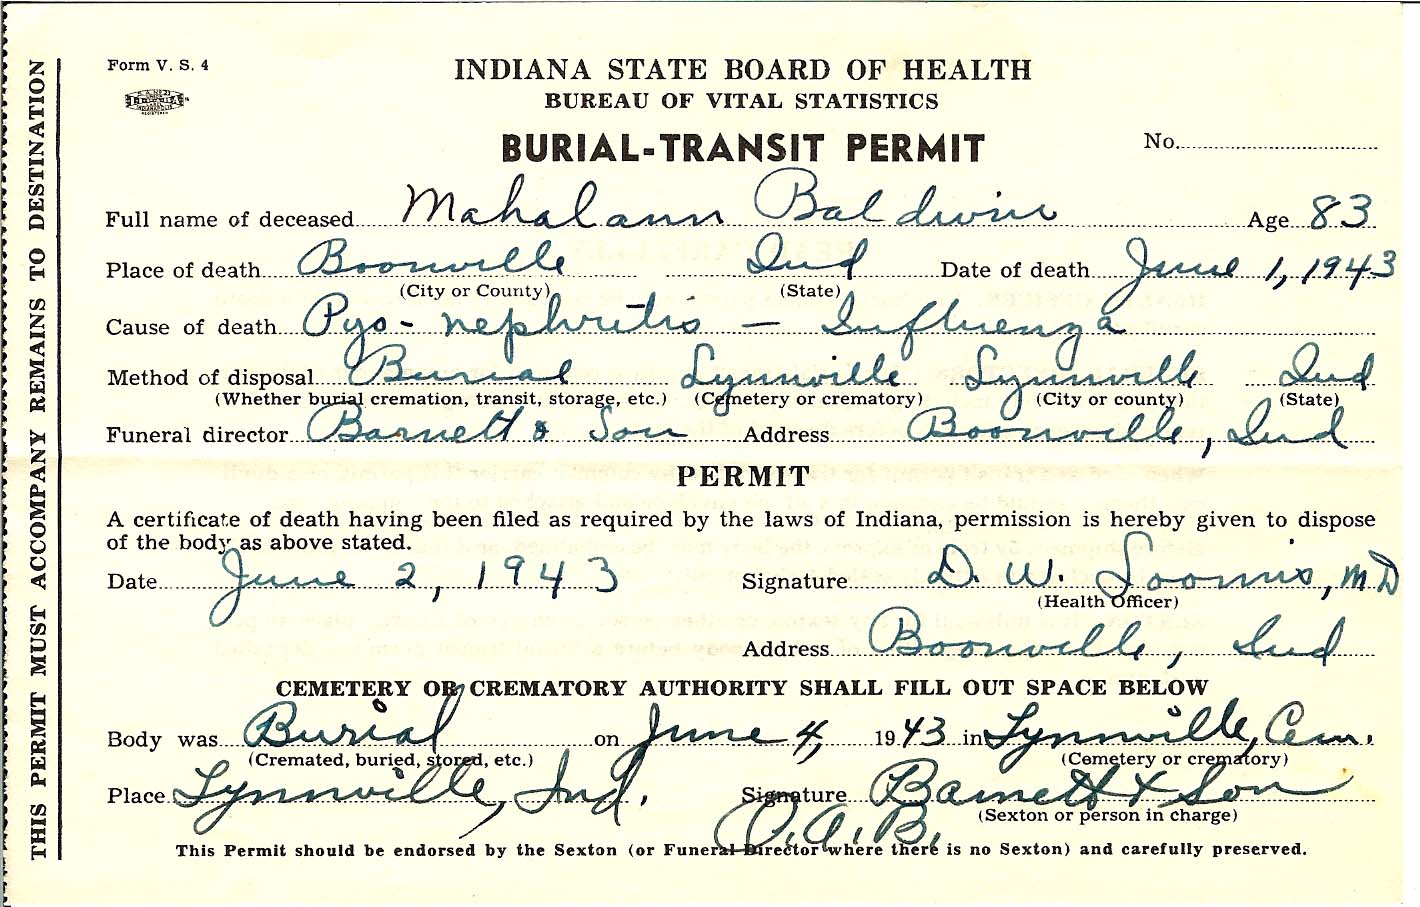 Form V. S. 4
INDIANA STATE BOARD OF HEALTH
BUREAU OF VITAL STATISTICS
BURIAL-TRANSIT PERMIT
No.
Full name of deceased Mahalann Baldwin Age 83
Place of death Boonville Ind Date of death June 1, 1943
(City or County) (State)
Cause of death Pyo-nephritis — Influenza
Method of disposal Burial Lynnville Lynnville Ind
(Whether burial cremation, transit, storage, etc.) (Cemetery or crematory) (City or county) (State)
Funeral director Barnett & Son Address Boonville, Ind
PERMIT
A certificate of death having been filed as required by the laws of Indiana, permission is hereby given to dispose
of the body as above stated.
Date June 2, 1943 Signature D. W. Loomis, MD
(Health Officer)
Address Boonville, Ind
CEMETERY OR CREMATORY AUTHORITY SHALL FILL OUT SPACE BELOW
Body was Burial on June 4, 1943 in Lynnville, Cem.
(Cremated, buried, stored, etc.) (Cemetery or crematory)
Place Lynnville, Ind. Signature Barnett & Son
(Sexton or person in charge)
O.A.B.
This Permit should be endorsed by the Sexton (or Funeral Director where there is no Sexton) and carefully preserved.
THIS PERMIT MUST ACCOMPANY REMAINS TO DESTINATION